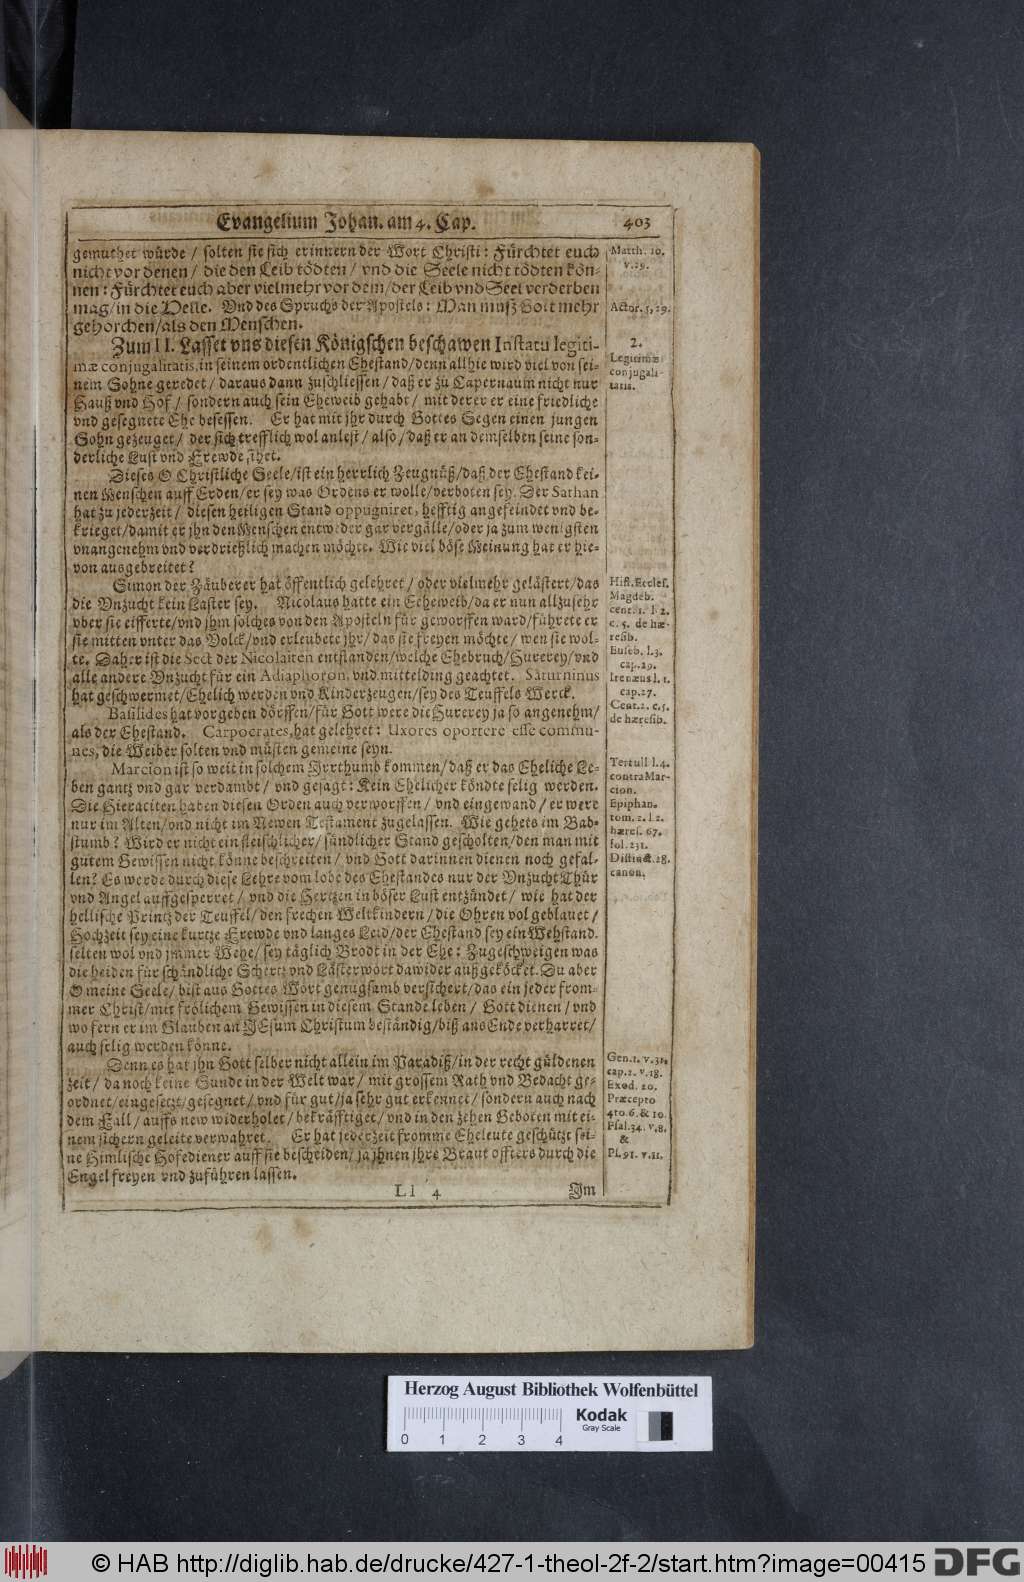 Evangelium Johan. am 4. Cap. 403
gemuthet würde / solten sie sich erinnern der Wort Christi: Fürchtet euch
nicht vor denen / die den Leib tödten / vnd die Seele nicht tödten kön-
nen: Fürchtet euch aber vielmehr vor dem / der Leib vnd Seel verderben
mag / in die Helle. Vnd des Spruchs der Apostels: Man muß Gott mehr
gehorchen / als den Menschen.
Zum II. Lasset vns diesen Königschen beschawen In statu legiti-
mæ conjugalitatis, in seinem ordentlichen Ehestand / denn allhie wird viel von sei-
nem Sohne geredet / daraus dann zuschliessen / daß er zu Capernaum nicht nur
Hauß vnd Hof / sondern auch sein Eheweib gehabt / mit derer er eine friedliche
vnd gesegnete Ehe besessen. Er hat mit jhr durch Gottes Segen einen jungen
Sohn gezeuget / der sich trefflich wol anlest / also / daß er an demselben seine son-
derliche Lust vnd Frewde sihet.
Dieses O Christliche Seele / ist ein herrlich Zeugnüß / daß der Ehestand kei-
nen Menschen auff Erden / er sey was Ordens er wolle / verboten sey. Der Sathan
hat zu jederzeit / diesen heiligen Stand oppugniret, hefftig angefeindet vnd be-
krieget / damit er jhn den Menschen entweder gar vergälle / oder ja zum wenigsten
vnangenehm vnd verdrießlich machen möchte. Wie viel böse Meinung hat er hie-
von ausgebreitet?
Simon der Zäuberer hat öffentlich gelehret / oder vielmehr gelästert / das
die Vnzucht kein Laster sey. Nicolaus hatte ein Eheweib / da er nun allzusehr
vber sie eifferte / vnd jhm solches von den Aposteln für geworffen ward / führete er
sie mitten vnter das Volck / vnd erleubete jhr / das sie freyen möchte / wen sie wol-
te. Daher ist die Sect der Nicolaiten entstanden / welche Ehebruch / Hurerey / vnd
alle andere Vnzucht für ein Adiaphoron, vnd mittelding geachtet. Saturninus
hat geschwermet / Ehelich werden vnd Kinderzeugen / sey des Teuffels Werck.
Basilides hat vorgeben dörffen / für Gott were die Hurerey ja so angenehm /
als der Ehestand. Carpocrates, hat gelehret: Uxores oportere esse commu-
nes, die Weiber solten vnd müsten gemeine seyn.
Marcion ist so weit in solchem Irrthumb kommen / daß er das Eheliche Le-
ben gantz vnd gar verdambt / vnd gesagt: Kein Ehelicher köndte selig werden.
Die Hieraciten haben diesen Orden auch verworffen / vnd eingewand / er were
nur im Alten / vnd nicht im Newen Testament zugelassen. Wie gehets im Bab-
stumb? Wird er nicht ein fleischlicher / sündlicher Stand gescholten / den man mit
gutem Gewissen nicht könne beschreiten / vnd Gott darinnen dienen noch gefal-
len? Es werde durch diese Lehre vom lobe des Ehestandes nur der Vnzucht Thür
vnd Angel auffgesperret / vnd die Hertzen in böser Lust entzündet / wie hat der
hellische Printz der Teuffel / den frechen Weltkindern / die Ohren vol geblauet /
Hochzeit sey eine kurtze Frewde vnd langes Leid / der Ehestand sey ein Wehstand.
selten wol vnd jmmer Wehe / sey täglich Brodt in der Ehe: Zugeschweigen was
die heiden für schändliche Schertz vnd Lästerwort dawider außgeköcket. Du aber
O meine Seele / bist aus Gottes Wort genugsamb versichert / das ein jeder from-
mer Christ / mit frölichem Gewissen in diesem Stande leben / Gott dienen / vnd
wo fern er im Glauben an JEsum Christum beständig / biß ans Ende verharret /
auch selig werden könne.
Denn es hat jhn Gott selber nicht allein im Paradiß / in der recht güldenen
zeit / da noch keine Sünde in der Welt war / mit grossem Rath vnd Bedacht ge-
ordnet / eingesetzt / gesegnet / vnd für gut / ja sehr gut erkennet / sondern auch nach
dem Fall / auffs new widerholet / bekräfftiget / vnd in den zehen Geboten mit ei-
nem sichern geleite verwahret. Er hat jederzeit fromme Eheleute geschützt sei-
ne Himlische Hofediener auff sie bescheiden / ja jhnen jhre Braut offters durch die
Engel freyen vnd zuführen lassen.
Ll 4 Im
Matth. 10.
v. 29.
Actor. 5, 29.
2.
Legitimæ
conjugali-
tatis.
Hist. Eccles.
Magdeb.
cent. 1. l. 2.
c. 5. de hæ-
resib.
Euseb. l. 3.
cap. 29.
Irenæus l. 1.
cap. 27.
Cent. 2. c. 5.
de hæresib.
Tertull l. 4.
contra Mar-
cion.
Epiphan.
tom. 2. l. 2.
hæres. 67.
fol. 231.
Distinct. 28.
canon.
Gen. 1. v. 31.
cap. 2. v. 18.
Exod. 20.
Præcepto
4to. 6. & 10.
Psal. 34. v. 8.
&
Ps. 91. v. 11.
Herzog August Bibliothek Wolfenbüttel
0 1 2 3 4
Kodak
Gray Scale
© HAB http://diglib.hab.de/drucke/427-1-theol-2f-2/start.htm?image=00415
DFG